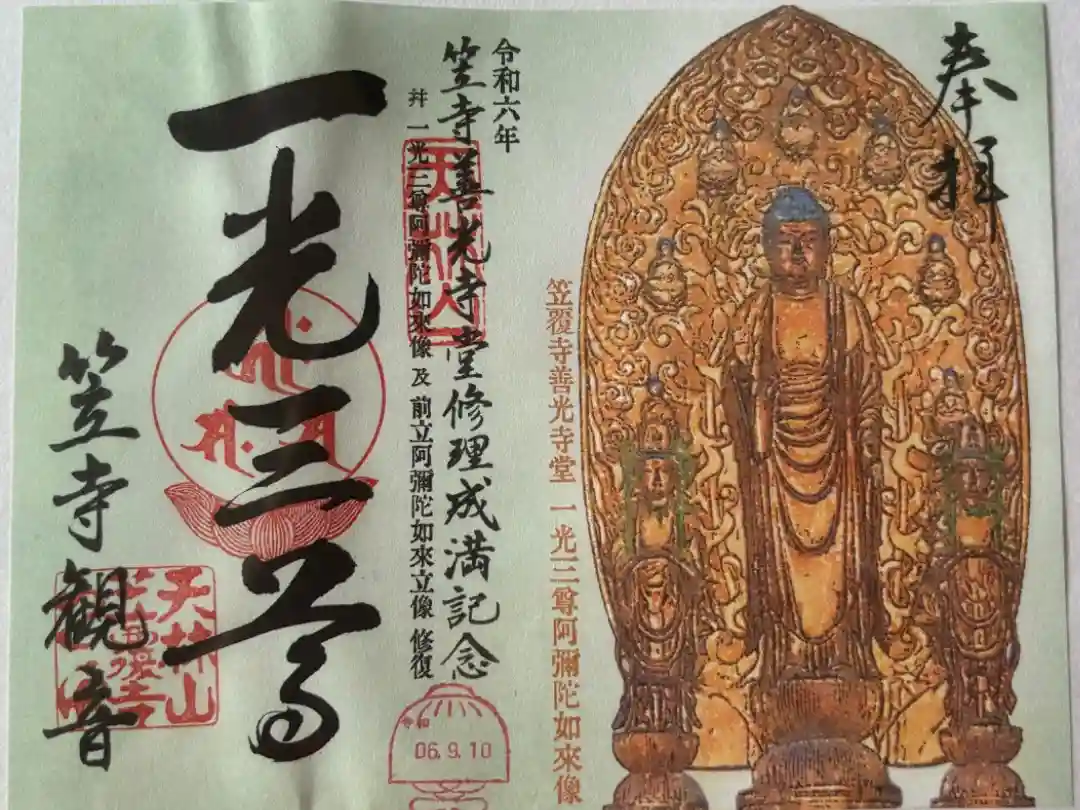 奉拝
笠覆寺善光寺堂 一光三尊阿彌陀如來像
令和六年
笠寺善光寺堂修理成満記念
幷 一光三尊阿彌陀如来像 及 前立阿彌陀如来立像 修復
天林山
令和
06.9.10
一光三尊
笠寺観音
天林山
笠覆寺